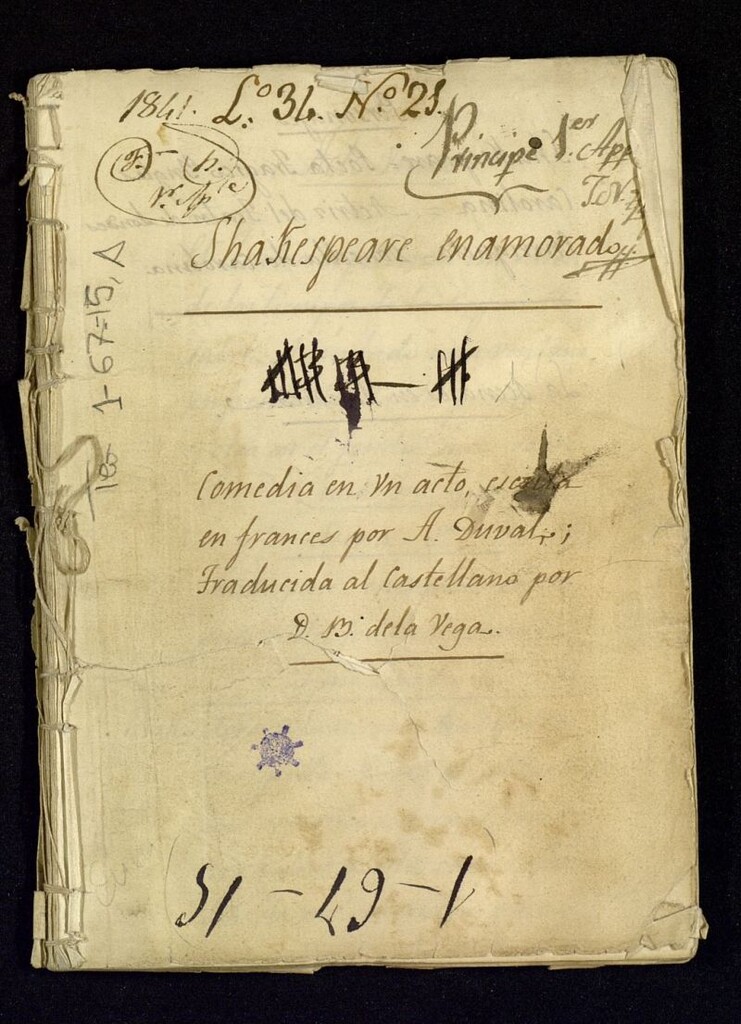 1841. L.º 34. N.º 21.
Principe 1.er App
Shakespeare enamorado
1-67-15, A
Comedia en un acto, escrita
en frances por A. Duval;
Traducida al Castellano por
D. B. de la Vega.
1-67-15